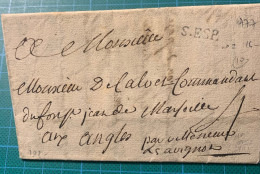 A Monsieur
S.ESP.
Monsieur De Calvet Commandant
du fort St jean de Marseille
aux angles par villeneuve
Les avignon